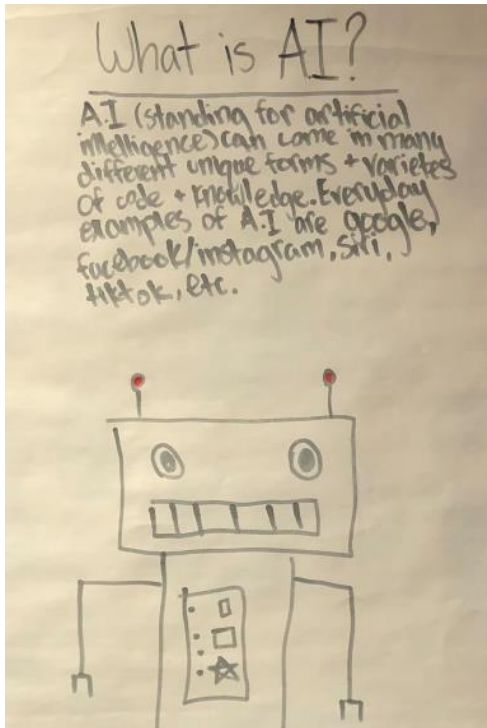 What is AI?
A.I (standing for artificial
intelligence) can come in many
different unique forms + varietes
of code + knowledge. Everyday
examples of A.I are google,
facebook/instagram, siri,
tiktok, etc.